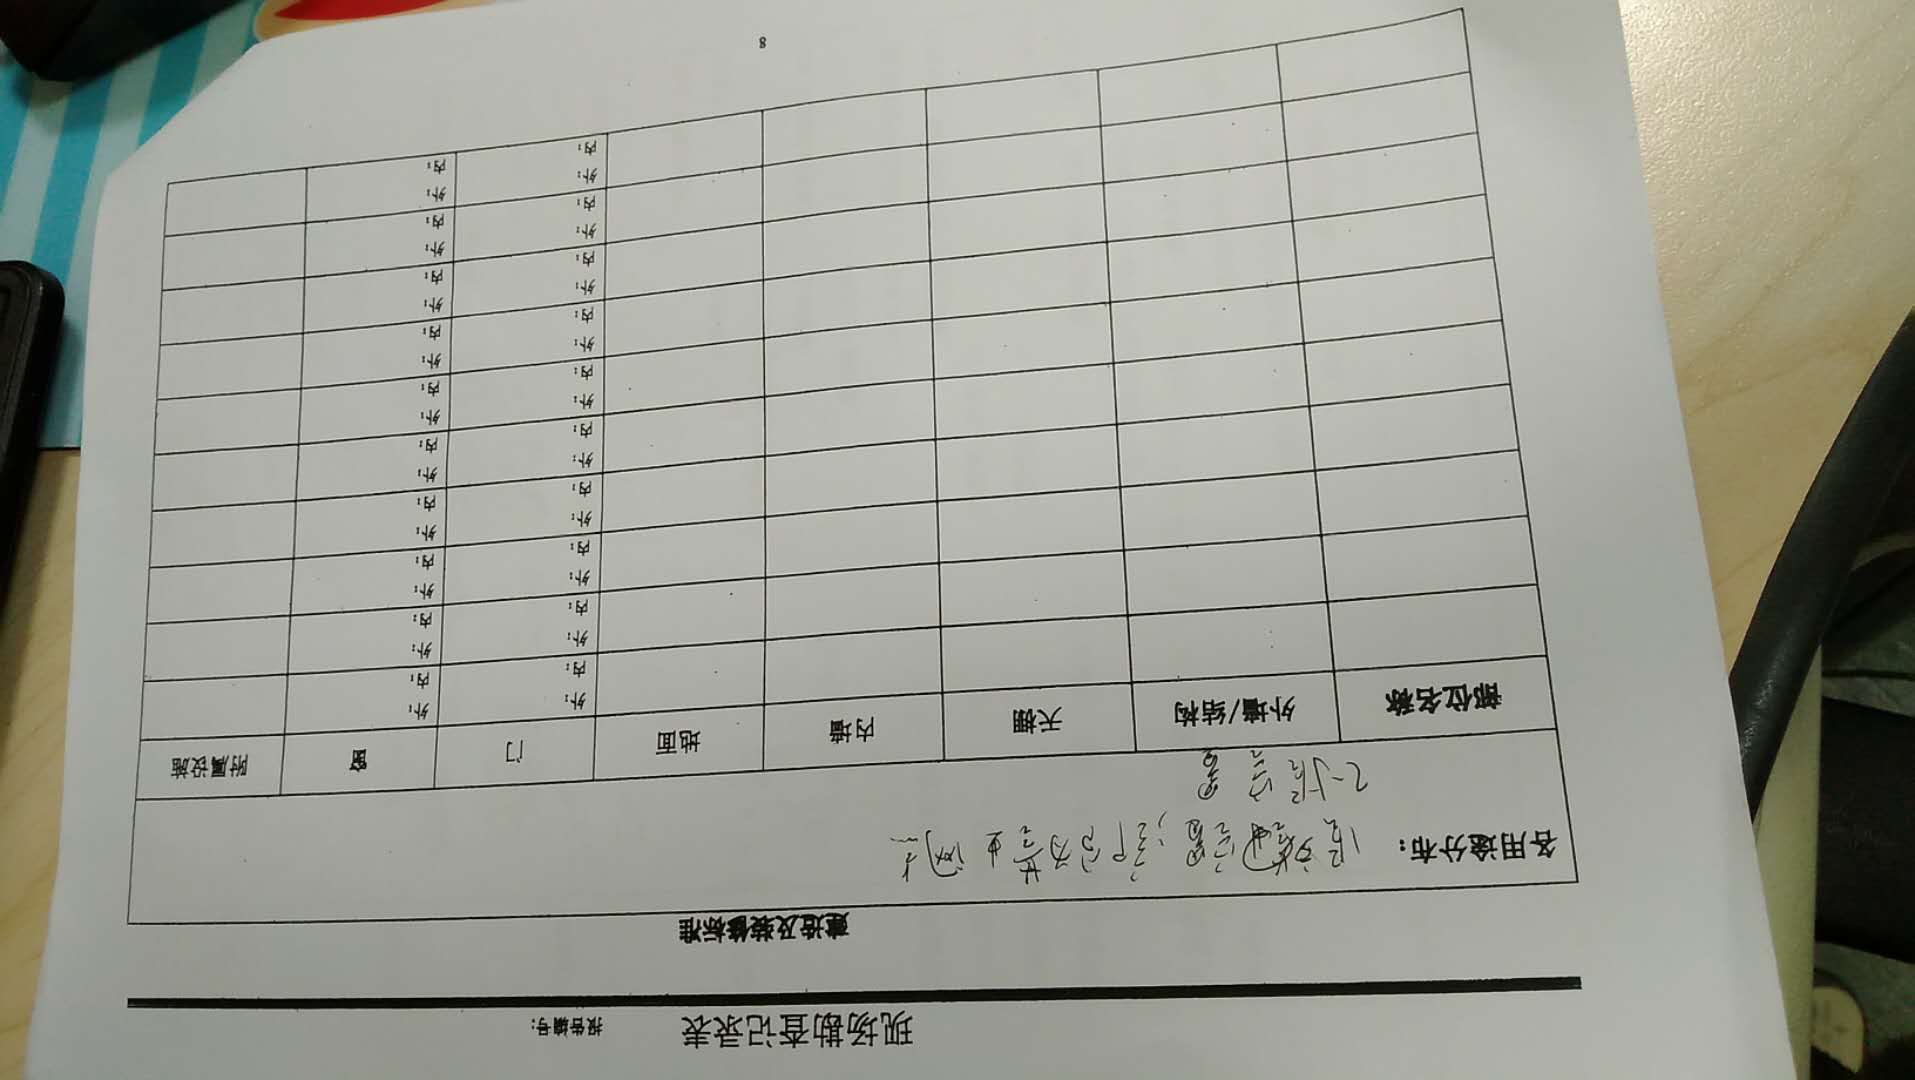 现场勘查记录表 报告编号：
建造及装修标准
各用途分布：
部位名称 外墙/结构 天棚 内墙 地面 门 窗 附属设施
外： 外：
内： 内：
外： 外：
内： 内：
外： 外：
内： 内：
外： 外：
内： 内：
外： 外：
内： 内：
外： 外：
内： 内：
外： 外：
内： 内：
外： 外：
内： 内：
外： 外：
内： 内：
外： 外：
内： 内：
8